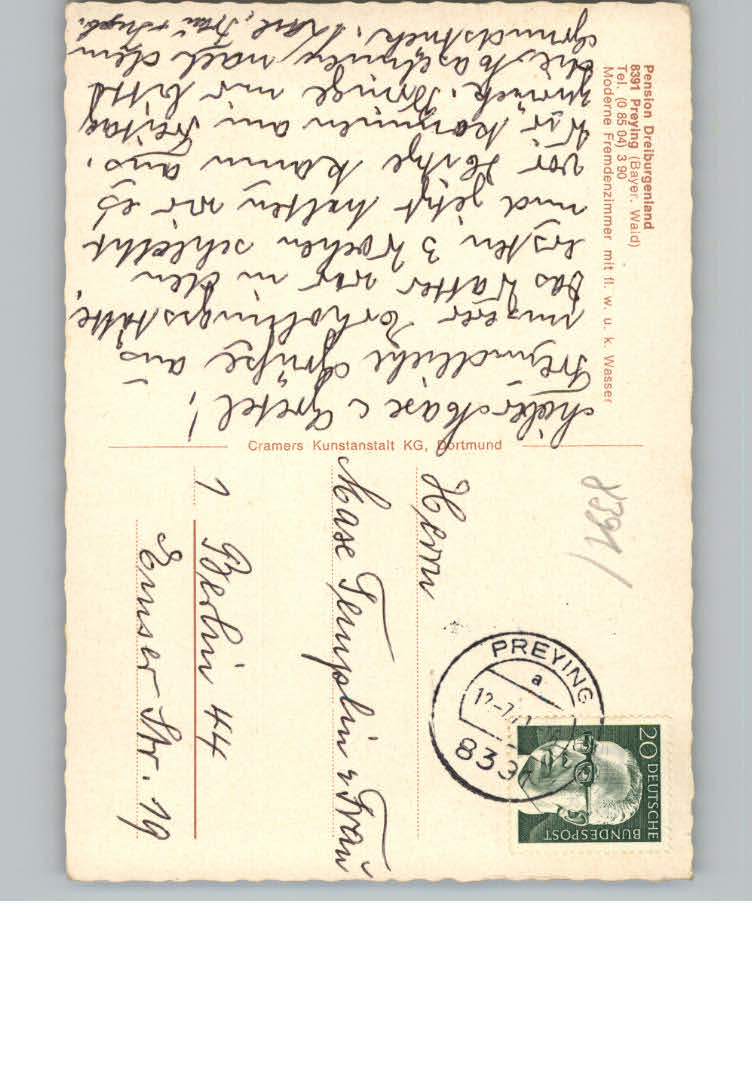 Pension Dreiburgenland
8391 Preying (Bayer. Wald)
Tel. (0 85 04) 3 90
Moderne Fremdenzimmer mit fl. w. u. k. Wasser
Lieber Maxe u. Gretel!
Freundliche Grüße aus
unserer Erhollungsstätte,
das Watter war in den
ersten 3 Wochen schlecht
und jetzt halten wir es
vor Hitze kaum aus.
Wir kommen am Freitag
zurück. Bringe mir bitte
die Maschine nach dem
Grundstück. Karl, Frau
Cramers Kunstanstalt KG, Dortmund
8391
PREYING
a
12.-7.
839
20 DEUTSCHE
BUNDESPOST
Herrn
Maxe Templin u Frau
1 Berlin 44
Emser Str. 19